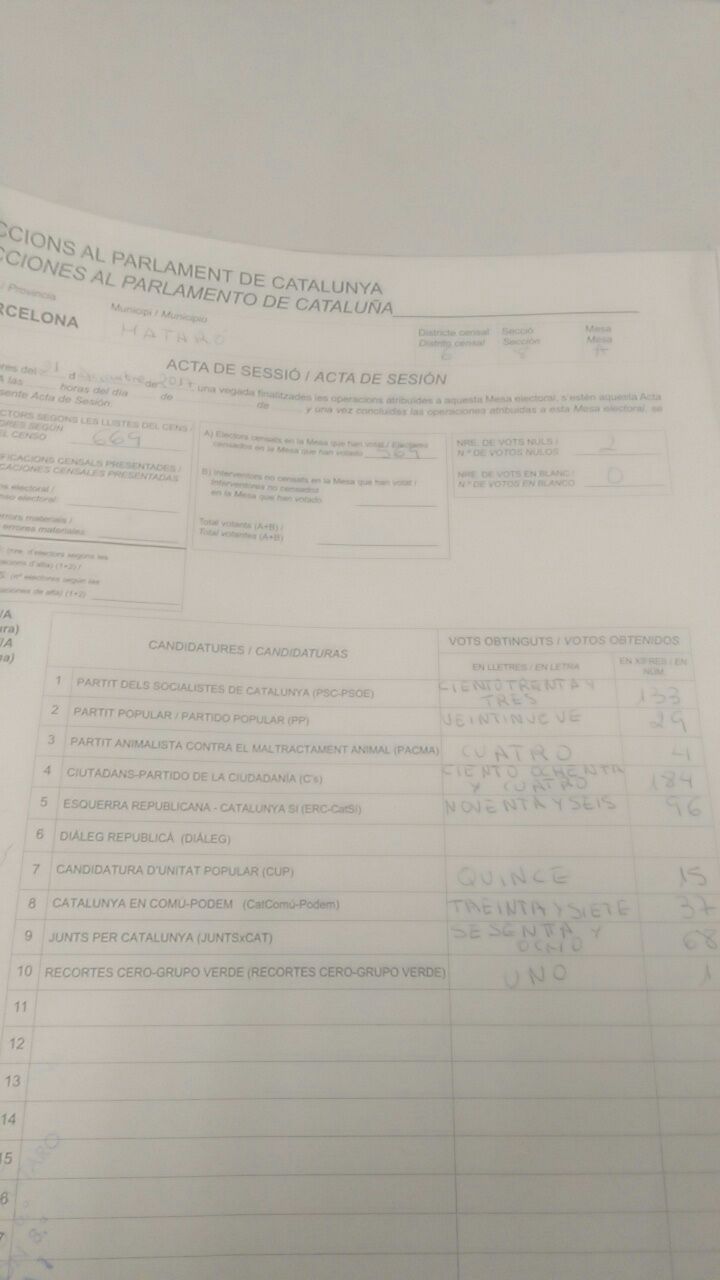 CCIONS AL PARLAMENT DE CATALUNYA
CCIONES AL PARLAMENTO DE CATALUÑA
/ Provincia
RCELONA
Municipi / Municipio
MATARÓ
Districte censal
Distrito censal
6
Secció
Sección
8
Mesa
Mesa
A
ACTA DE SESSIÓ / ACTA DE SESIÓN
ores del 21 d de 2017, una vegada finalitzades les operacions atribuïdes a aquesta Mesa electoral, s'estén aquesta Acta
A las horas del día de de y una vez concluidas las operaciones atribuidas a esta Mesa electoral, se
sente Acta de Sesión.
CTORS SEGONS LES LLISTES DEL CENS /
ORES SEGÚN
EL CENSO 669
FICACIONS CENSALS PRESENTADES /
CACIONES CENSALES PRESENTADAS
os electoral /
nso electoral:
errors materials /
errores materiales:
: (nre. d'electors segons les
d'alta) (1+2) /
S: (nº electores según las
de alta) (1+2)
A) Electors censats en la Mesa que han votat / Electores
censados en la Mesa que han votado 569
B) Interventors no censats en la Mesa que han votat /
Interventores no censados
en la Mesa que han votado
Total votants (A+B) /
Total votantes (A+B)
NRE. DE VOTS NULS /
N.º DE VOTOS NULOS 2
NRE. DE VOTS EN BLANC /
N.º DE VOTOS EN BLANCO 0
/A
ra)
/A
a)
CANDIDATURES / CANDIDATURAS
VOTS OBTINGUTS / VOTOS OBTENIDOS
EN LLETRES / EN LETRA
EN XIFRES / EN NÚM.
1 PARTIT DELS SOCIALISTES DE CATALUNYA (PSC-PSOE) CIENTO TRENTA Y TRES 133
2 PARTIT POPULAR / PARTIDO POPULAR (PP) VEINTINUEVE 29
3 PARTIT ANIMALISTA CONTRA EL MALTRACTAMENT ANIMAL (PACMA) CUATRO 4
4 CIUTADANS-PARTIDO DE LA CIUDADANÍA (C's) CIENTO OCHENTA Y CUATRO 184
5 ESQUERRA REPUBLICANA - CATALUNYA SÍ (ERC-CatSí) NOVENTA Y SEIS 96
6 DIÀLEG REPUBLICÀ (DIÀLEG)
7 CANDIDATURA D'UNITAT POPULAR (CUP) QUINCE 15
8 CATALUNYA EN COMÚ-PODEM (CatComú-Podem) TREINTA Y SIETE 37
9 JUNTS PER CATALUNYA (JUNTSxCAT) SESENTA Y OCHO 68
10 RECORTES CERO-GRUPO VERDE (RECORTES CERO-GRUPO VERDE) UNO 1
11
12
13
14
15
6
7